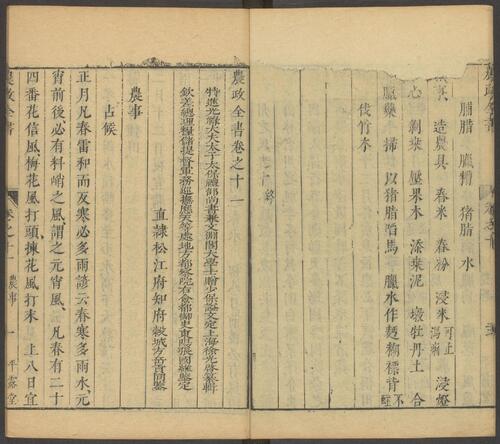 農政全書
腊脂 臘糟 猪脂 水
造農具 舂米 舂粉 浸米 可止瀉痢 浸燈
心 剝桑 壓果木 添桑泥 墩牡丹土 合
臘藥 掃 以猪脂啗馬 臘水作麪糊褾背不蛀
伐竹木
農政全書卷之十一
特進光祿大夫太子太保禮部尚書兼文淵閣大學士贈少保諡文定上海徐光啓纂輯
欽差總理糧儲提督軍務巡撫應天等處地方都察院右僉都御史東陽張國維鑒定
直隸松江府知府穀城方岳貢同鑒
農事
占候
正月凡春雷和而反寒必多雨諺云春寒多雨水元
宵前後必有料峭之風謂之元宵風凡春有二十
四番花信風梅花風打頭楝花風打末 上八日宜
農政全書 卷之十一 農事 一 平露堂